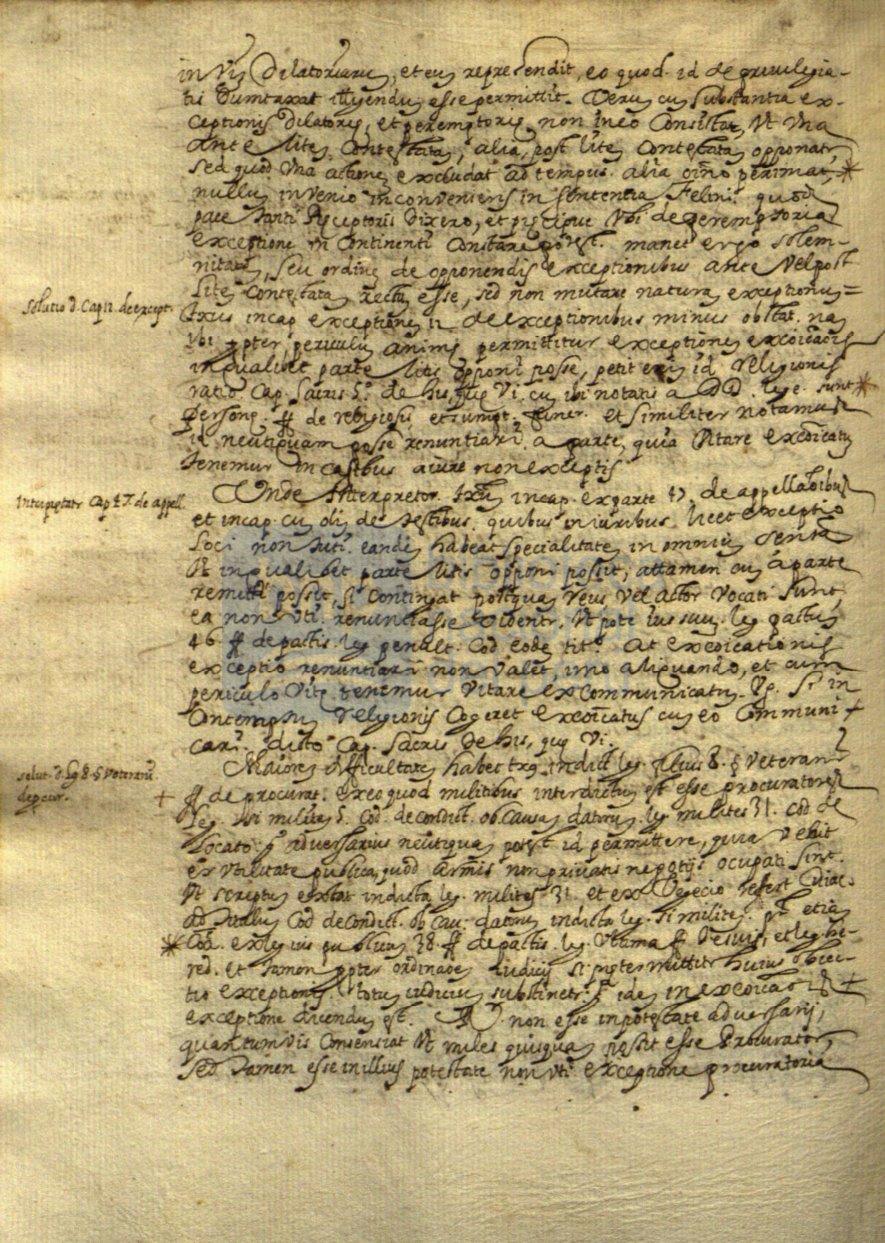 in Vi, Dilatoriarum, et eum reprehendit, eo quod id de privilegia-
tis dumtaxat esse permittit. Verum cum substantia ex-
ceptionis dilatoriæ, et peremptoriæ, non in eo consistat, ut una
ante litem contestatam, alia, post litem contestatam opponatur,
sed quod una actionem excludat ad tempus, alia oīno perimat,
nullum invenio inconveniens in sententia Felini quod
pace tanti Præceptoris dixero, et præcipue ubi de peremptoria
exceptione in continenti constare potest. manet ergo solem-
nitatem, seu ordinem de opponendis exceptionibus ante vel post
litem contestatam rectum esse, sed non mutare naturam exceptionum=
solutio d. Cap 12. de except.
Textus in cap exceptionem 12 de exceptionibus minus obstat. nam
ubi propter periculum animæ permittitur exceptionem excoīcaōis
in qualibet parte litis opponi posse, petit enim id religionis
ratio Cap. sacris 5.º de his, quæ Vi. cum ibi notatis a DD. lege. sunt
personæ ff de religiosis et sumpt. funer. et similiter notamus
id neutiquam posse renuntiari a parte, quia vitare excoīcatum
tenemur in casibus a iure non exceptis
Interpretatr Cap 17. de appell.
Unde interpretor textum in cap. ex parte 17. de appellatōibus
et in cap. cum olī de testibus, quibus in iuribus licet exceptio
loci non tuti eandem habeat specialitatem in omnium
ut in qualibet parte litis opponi possit, attamen cum a parte
remitti possit, si contingat postquam reus vel actor vocati sunt,
ea non uti renuntiasse videntr, ut pote iuri suo. leg pactum
46. ff de pactis. leg penult. Cod eodem tit.º At excoīcationis
exceptio renuntiari non valet, imo aliquando, et cum
periculo vitæ tenemur vitare excommunicatum. Vs. si in
contemptum religionis cogeret excoīcatus cum eo communi
cari. dicto Cap. sacris de his, quæ Vi.
solut. d. leg 8. § veterani
de procur.
Maiorem difficultatem habet txs in dict leg. filius 8. § veterani
ff de procurat. ex eo quod militibus interdictum est esse procuratores
leg. militem Cod. de condict. ob causam datorum. leg milites 31. Cod de
locato et adversarius neutiquam potest id permittere, quia vertit
ex utilitate publica, quod armis non privatis negotijs occupati sint.
ut scriptum extat in dicta leg. milites 31. et ex Vegecio refert
ad titulum Cod de condict. ob cau. datorum in dicta leg. si militem. etiam
Cod. ex leg ius publicum 38 ff de pactis. leg Ultima ff de suis, et leg he-
red. et tamen propter ordinaōem iudicij si prætermittitr huius obiec-
tio exceptionis, totum iudicium sustinetr. idem in excoīcaōis
exceptione dicendum est. non esse in potestate adversarij,
quantumvis consentiat ut miles quisquam possit esse Procurator,
sed tamen esse in illius potestate non uti exceptione procuratoria